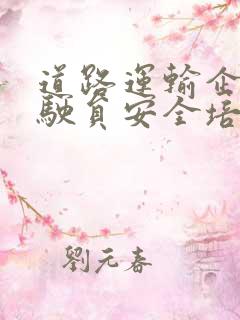 道路運輸企
駛員安全培
劉元春